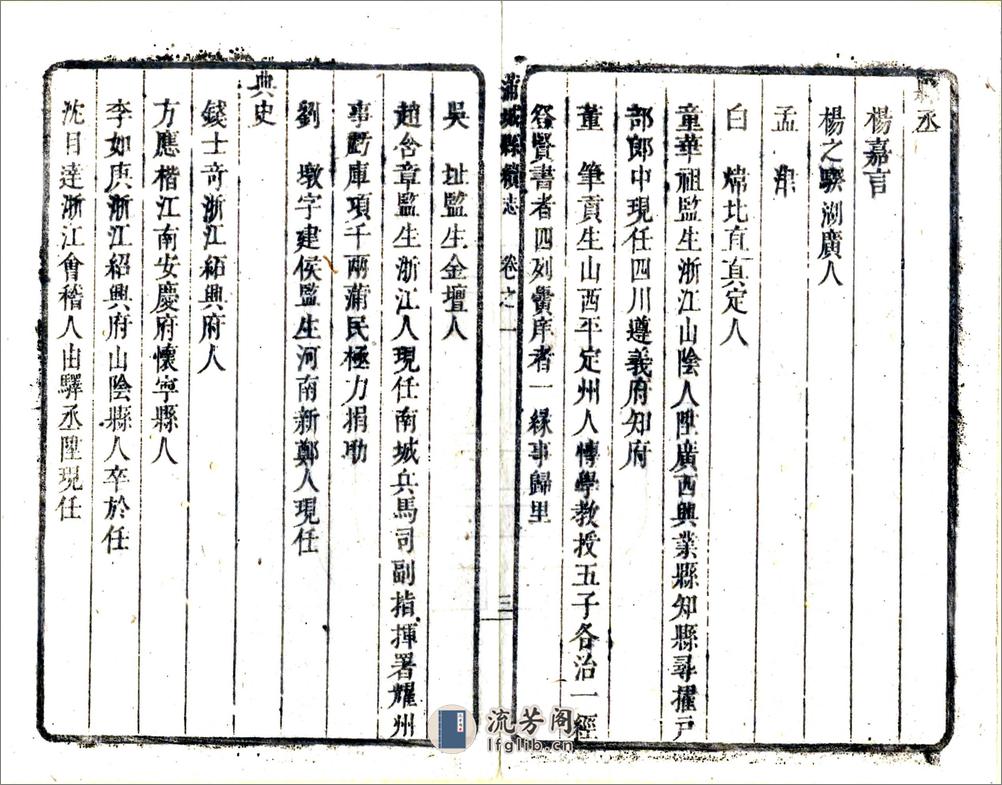 丞
楊嘉言
楊之騤湖廣人
孟
白　比直真定人
童華祖監生浙江山陰人陞廣西興業縣知縣尋擢戶
部郎中現任四川遵義府知府
董　筆貢生山西平定州人博學教授五子各治一經
登賢書者四列黌庠者一緣事歸里
蒲城縣續志　卷之一　三
吳　址監生金壇人
趙含章監生浙江人現任南城兵馬司副指揮署耀州
事虧庫項千兩蒲民極力捐助
劉　墩字建侯監生河南新鄭人現任
典史
錢士奇浙江紹興府人
方應楷江南安慶府懷寧縣人
李如庚浙江紹興府山陰縣人卒於任
沈目達浙江會稽人由驛丞陞現任
流芳阁
lfglib.cn